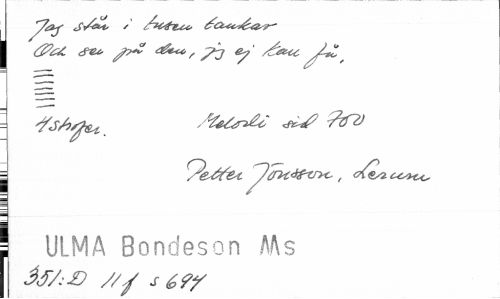 Jag står i tusen tankar
Och ser på den, jag ej kan få.
4 strofer. Melodi sid 700
Petter Jonsson, Lerum
ULMA Bondeson Ms
351:D 11 f s 694